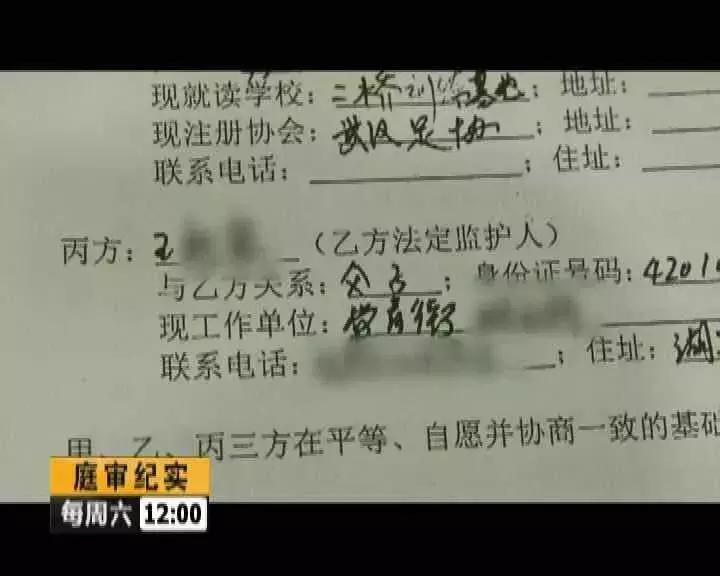 现就读学校：二桥训练基地；地址：
现注册协会：武汉足协；地址：
联系电话：；住址：
丙方：王（乙方法定监护人）
与乙方关系：父子；身份证号码：4201
现工作单位：
联系电话：；住址：湖
甲、乙、丙三方在平等、自愿并协商一致的基础
庭审纪实
每周六 12:00